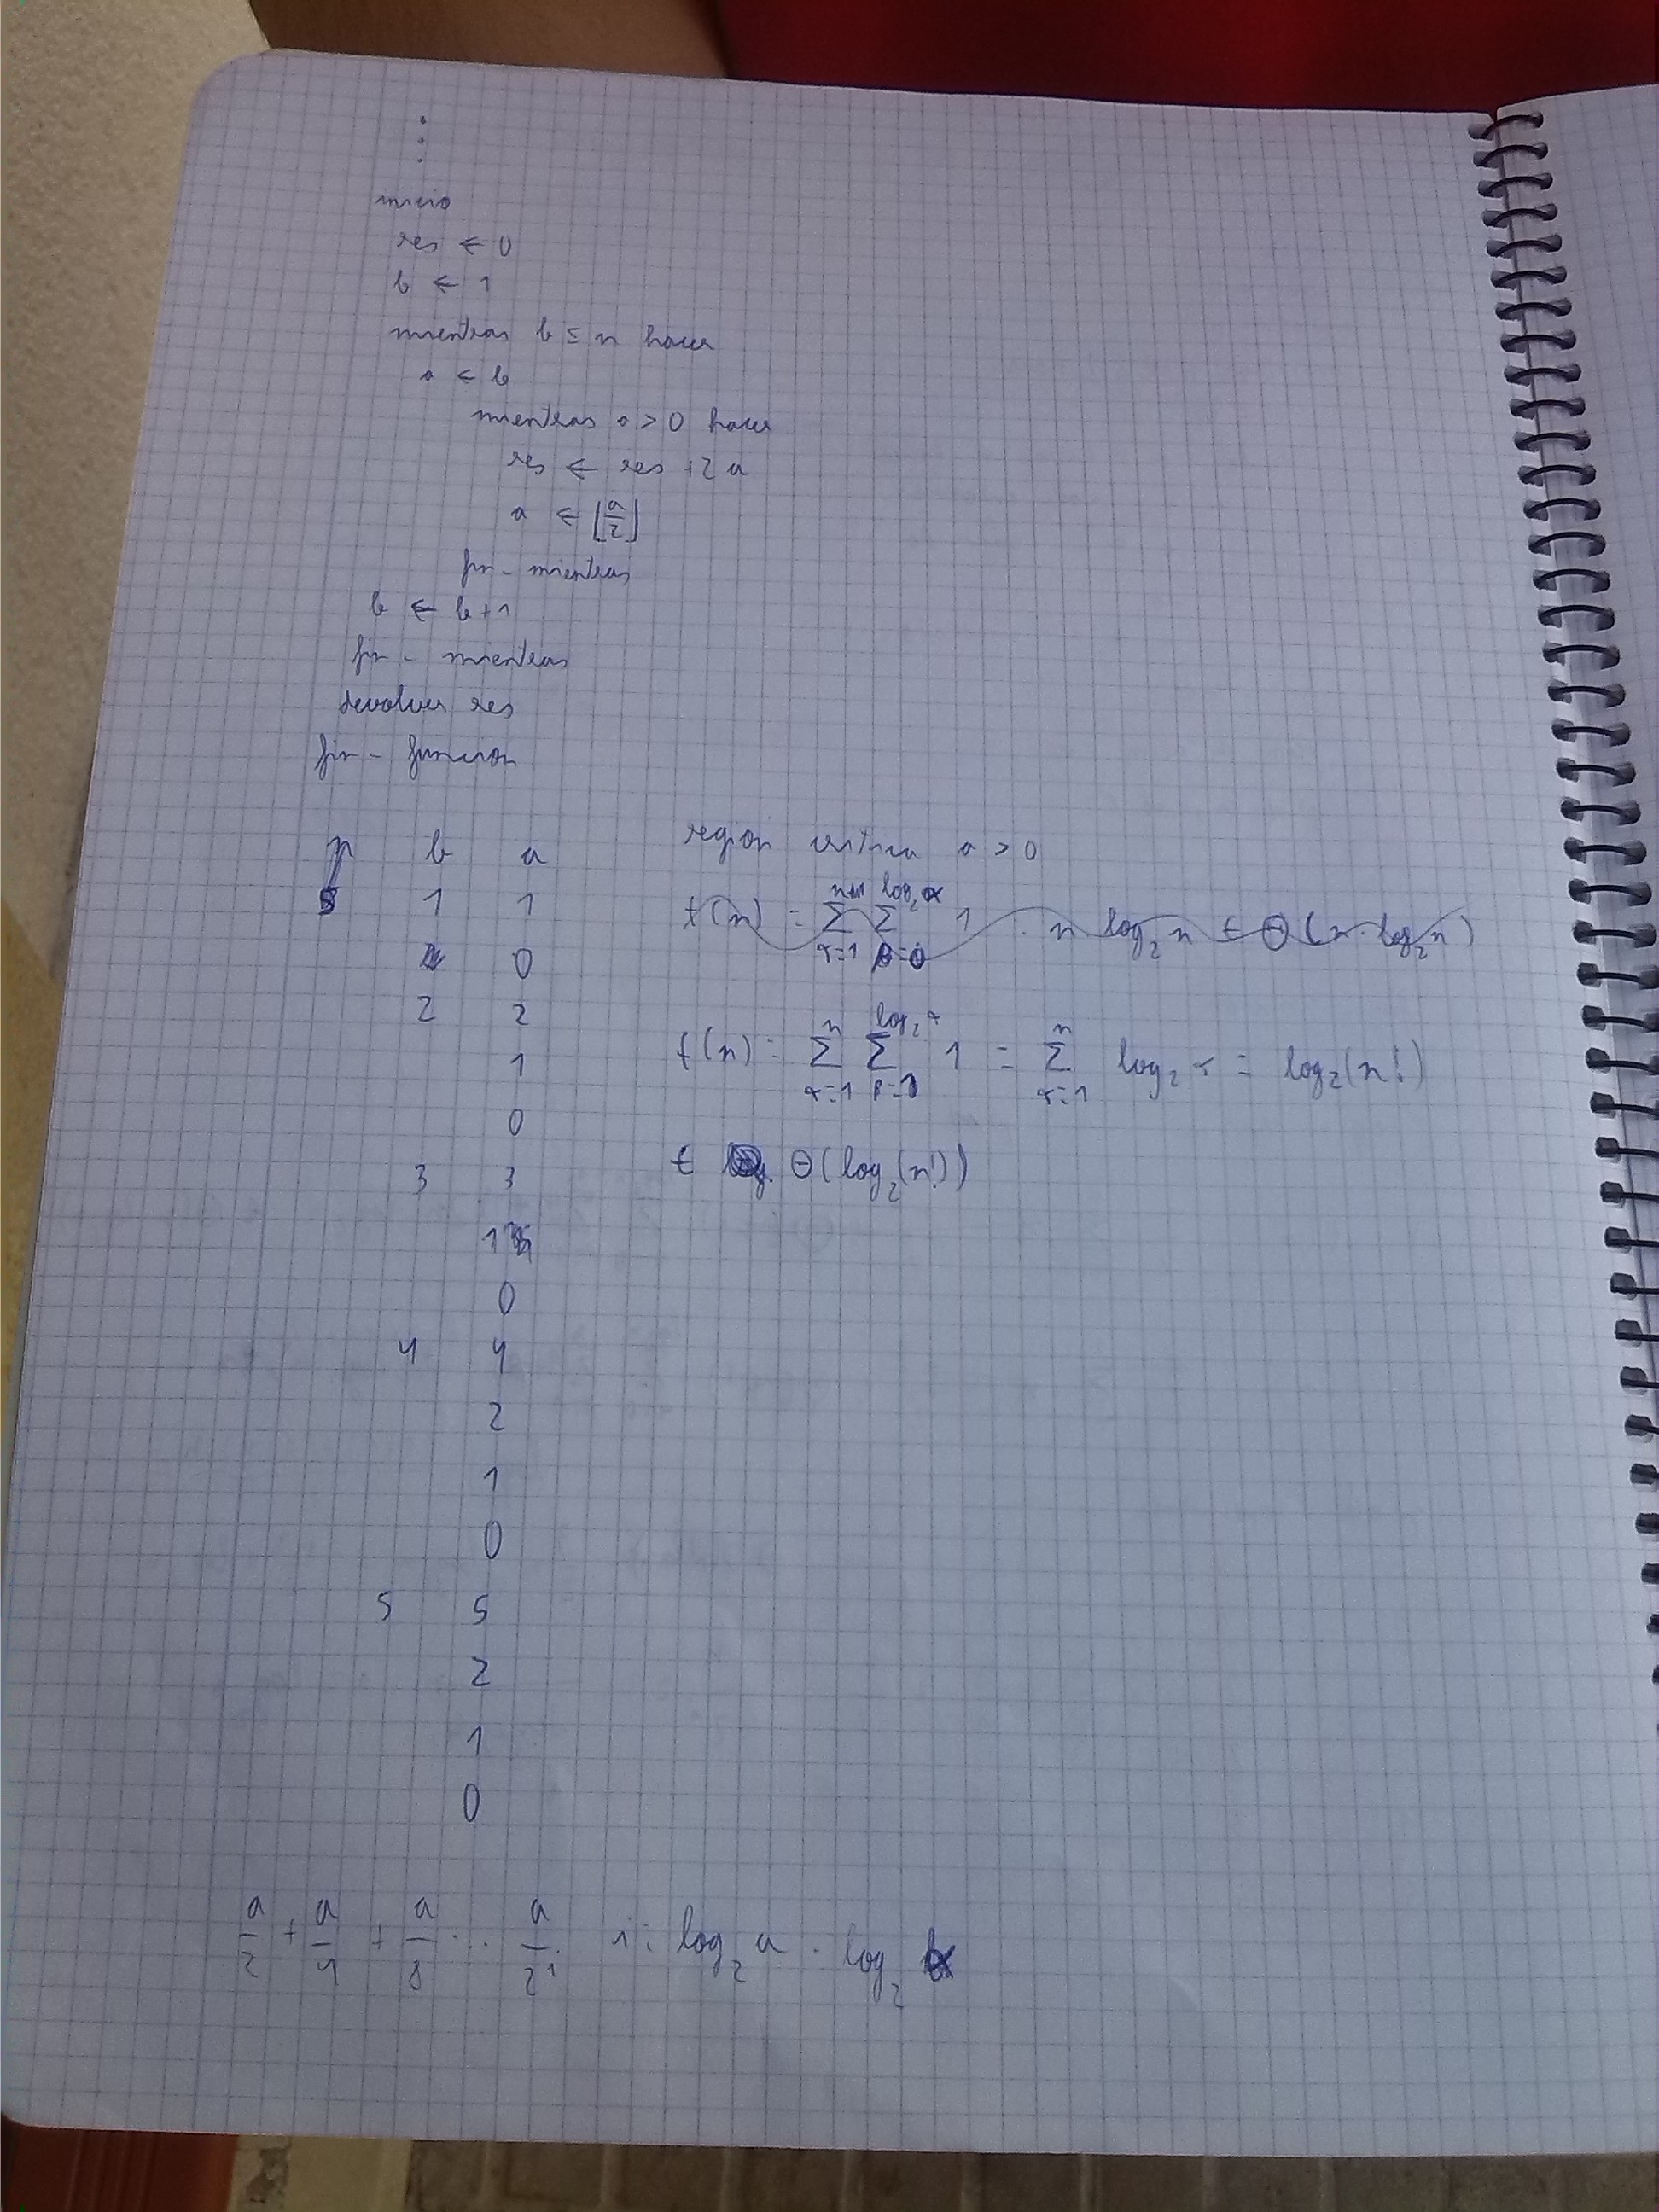 ⋮
inicio
res ← 0
b ← 1
mientras b ≤ n hacer
a ← b
mientras a > 0 hacer
res ← res + 2 a
a ← ⌊a/2⌋
fin - mientras
b ← b + 1
fin - mientras
devolver res
fin - funcion
n b a
5 1 1
0
2 2
1
0
3 3
1
0
4 4
2
1
0
5 5
2
1
0
region critica a > 0
t(n) = Σ Σ 1 = n · log₂ n ∈ Θ(n · log₂ n)
t(n) = Σ_{α=1}^{n} Σ_{β=1}^{log₂ α} 1 = Σ_{α=1}^{n} log₂ α = log₂(n!)
∈ Θ(log₂(n!))
a/2 + a/4 + a/8 ... a/2^i i = log₂ a = log₂